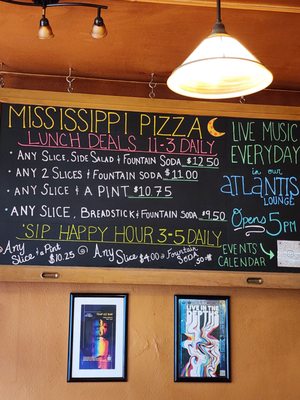 MISSISSIPPI PIZZA
LUNCH DEALS 11-3 DAILY
• ANY SLICE, SIDE SALAD + FOUNTAIN SODA $12.50
• ANY 2 SLICES + FOUNTAIN SODA $11.00
• ANY SLICE + A PINT $10.75
• ANY SLICE, BREADSTICK + FOUNTAIN SODA $9.50
SIP HAPPY HOUR 3-5 DAILY
Any Slice + a Pint $10.25
Any Slice $4.00 + Fountain
LIVE MUSIC
EVERYDAY
in our
ATLANTIS
LOUNGE
Opens 5pm
EVENTS
CALENDAR
LIVE IN THE
DEPTHS